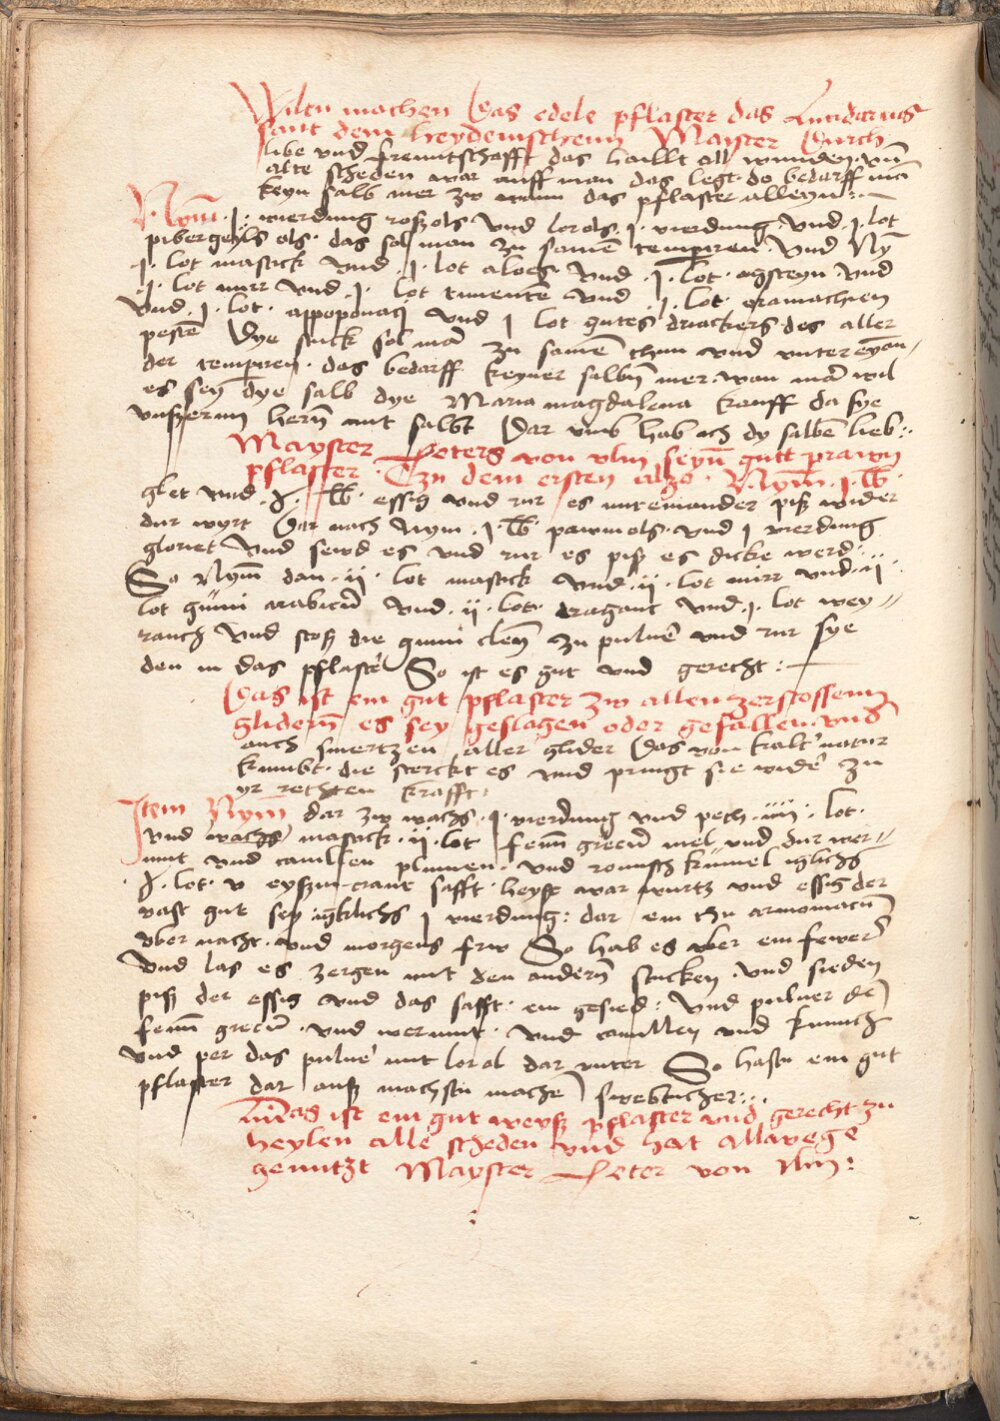 Wiltu machen Das edele pflaster das Lucidarius
sant dem heydenischenn Mayster Durch
libe vnd freuntschafft das haillt all wunden vñ
alte scheden war auff man das legt do bedarff mā
keyn salb mer zw wann das pflaster alleyn :
Nym̄ · j · vierdung roszols vnd lorols · j · vierdung · vnd · j · lot
pibergeyls ols · das sol man zu samē temperren · vnd Ny͞
· j · lot mastick vnd · j · lot aloes · vnd · j · lot · agsteyn · vnd
· j · lot mirr vnd · j · lot vnd · j · lot
vnd · j · lot · appoponaci vnd j lot gutes driackers des aller
pestē Dye stuck sol mā zu samē thun vnd vnter eyan
der temperren · das bedarff keyner salbñ mer · wan mā wil
es seÿ dye salb dye Maria magdalena kauff da sye
vnszerñ herñ mit salbt Dar vmb hab ich dy salbē lieb :
Mayster Peters von vlm seyñ gutt prawn
pflaster · Tzu dem ersten alzo · Nym̄ · j · lb
glet vnd · j · lb · essig vnd rur es mit einander pisz wider
dur wyrt Dar nach Nym · j · lb · pawmols · vnd j vierdung
gloriet vnd sewd es vnd rur es pisz es dicke werd :
So Nym̄ dan · ij · lot mastick vnd · ij · lot mirr vnd · ij ·
lot gūmi arabicū vnd · ij · lot · dragant vnd · j · lot wey
rauch vnd stosz die gumi cleñ zu puluē vnd rur sye
den in das pflastē So ist es gut vnd gerecht :
Das ist ein gut pflaster zw allen zerstossenn
glidernn es sey geslagen oder gefallen vnd
auch smertzen aller glider Das von kalt' natur
kumbt · die sterckt es vnd pringt sie widē zu
yr rechten krafft
Item Nym̄ dar zw wachs · j · vierdung vnd pech · iiij · lot ·
vnd wachs mastick · ij · lot fenū grecū mel vnd dur wer
mut vnd camillen plumen · vnd romisch kūmel iglichs
lot · v eyszen craut safft · heysz war wurtz vnd essig der
vast gut sey igklichs j vierdung : dar ein thu armoniacū
vber nacht · vnd morgens frw So hab es vber ein fewer
vnd las es zergen mit den anderñ stucken · vnd sieden
pisz der essig vnd das safft · ein gesied : vnd puluer dē
fenū grecū · vnd wermut · vnd camillen vnd kumich
vnd per das puluē mit lorol dar vnter So hastu ein gut
pflaster dar ausz machstu machē swebtucher :
Das ist ein gut weysz pflaster vnd gerecht zu
heylen alle scheden vnd hat allwege
genutzt Mayster Peter von Vlm :